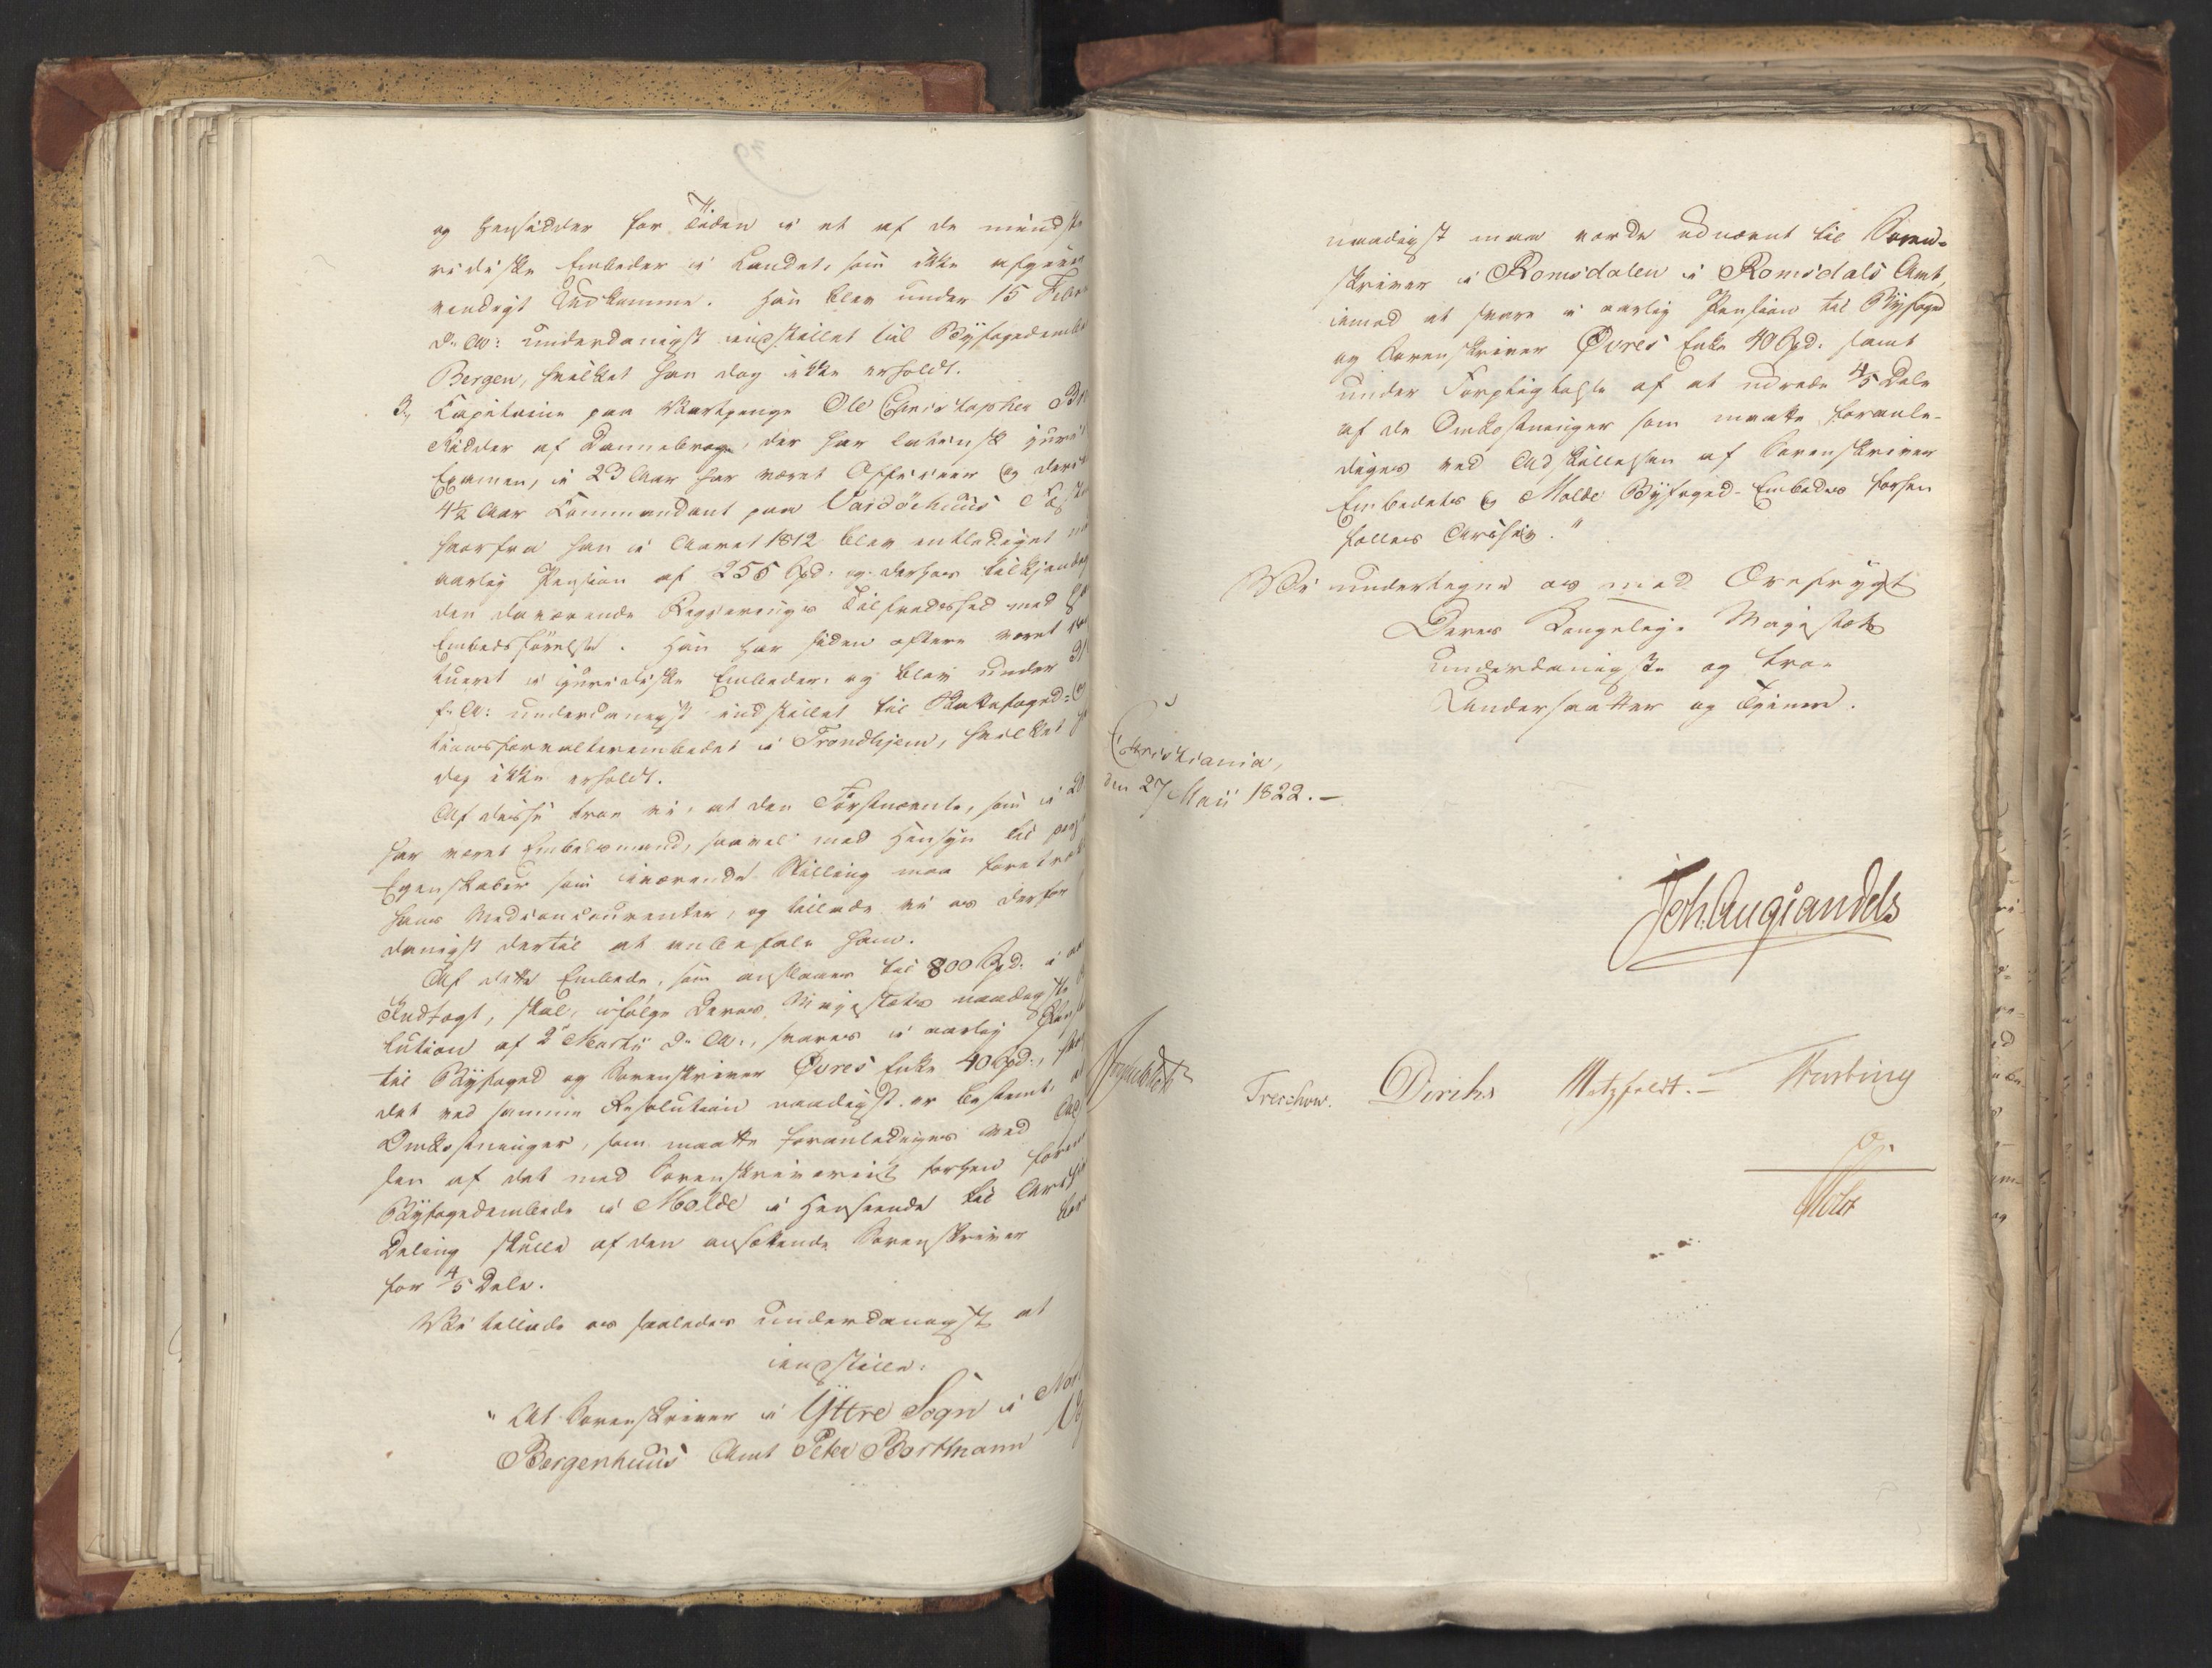 og hensidder for Tiden i et af de mindste
ridiske Embeder i Landet, som ikke afgiver
vendigt Udkomme. Han blev under 15 Febr
d. A: underdanigst indstillet til Byfogedembe
Bergen, hvilket han dog ikke erholdt.
3, Capitaine paa Vartpenge Ole Christopher
Ridder af Dannebroge, der har latinsk juri
Examen, i 23 Aar har været Officeer og deri
4½ Aar Commandant paa Vardöehuus Fæst
hvorfra han i Aaret 1812 blev entlediget
aarlig Pension af 255 Spd. og derhos tilkjende
den daværende Regjerings Tilfredshed med
Embedsførelse. Han har siden oftere været
tueret i juridiske Embeder og blev under
f. A: underdanigst indstillet til Skattefoged- og
tionsforvalterembedet i Trondhjem, hvilket
dog ikke erholdt.
Af disse troe vi, at den Førstnævnte, som i 20
har været Embedsmand, saavel med Hensyn til
Egenskaber som iværende Stilling maa foretræk
hans Medconcurrenter, og tillade vi os derfor
danigst dertil at anbefale ham.
Af dette Embede, som anslaaes til 800 Spd. i
Indtægt, skal, ifølge Deres Majestæts naadigste
lution af 2 Martii d. A., svares i aarlig Pens
til Byfoged og Sorenskriver Øvres Enke 40 Spd.,
det ved samme Resolution naadigst er bestemt
Omkostninger, som maatte foranlediges ved Ad
sen af det med Sorenskriveriet forhen foren
Byfogedembede i Molde i Henseende til Archiv
Deling skulle af den ansættende Sorenskriver
for 4/5 Dele.
Vi tillade os saaledes underdanigst at
indstille:
"At Sorenskriver i Yttre Sogn i Nor
Bergenhuus Amt Peter Borthmann
naadigst maa vorde udnævnt til Soren-
skriver i Romsdalen i Romsdals Amt,
imod at svare i aarlig Pension til Byfoged
og Sorenskriver Øvres Enke 40 Spd. samt
under Forpligtelse af at udrede 4/5 Dele
af de Omkostninger som maatte foranle-
diges ved Adskillelsen af Sorenskriver
Embedets og Molde Byfoged-Embedes forhen
fælles Archiv."
Vi undertegne os med Ærefrygt
Deres Kongelige Majestæts
underdanigste og troe
Undersaatter og Tjenere.
Christiania,
den 27 Maii 1822.-
Joh. Aug Sandels
Treschow. Diriks Motzfeldt.-